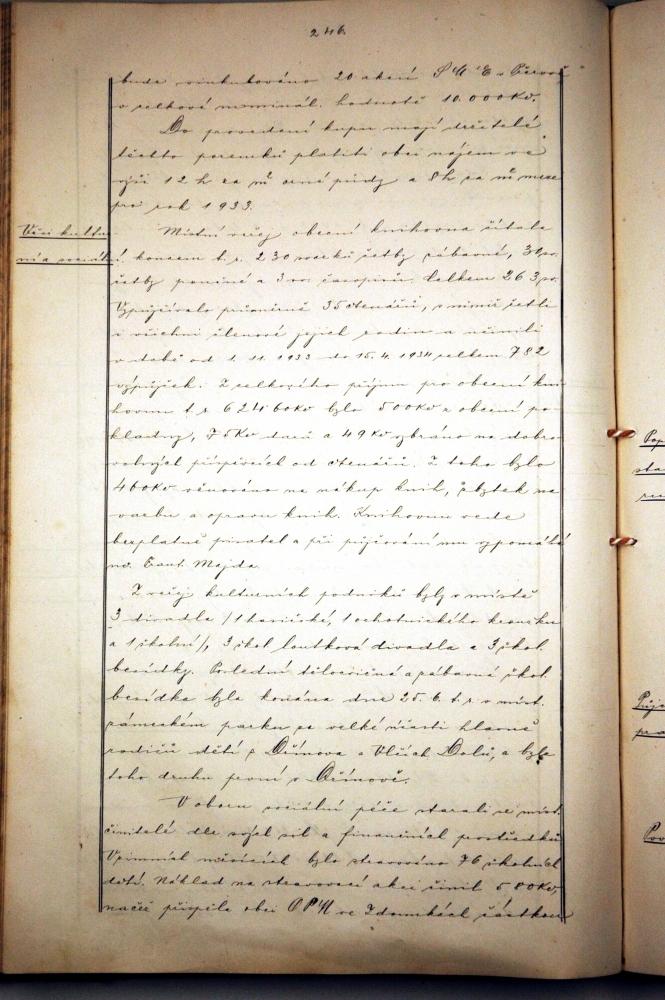 246.
bude vinkulováno 20 akcií
v celkové nominál. hodnotě 10.000 Kč.
Do provedení kupu mají držitelé
těchto pozemků platiti obci nájem ve
výši 12 h za m² orné půdy a 8 h za m² meze
pro rok 1933.
Věci kultur-
ní a sociální.
Místní veřej. obecní knihovna čítala
koncem t. r. 230 svazků četby zábavné, 30 sv.
četby poučné a 3 sv. časopisů. Celkem 263 sv.
Vypůjčovalo průměrně 35 čtenářů, s nimiž četli
i všichni členové jejich rodin a učinili
v době od 1. 11. 1933 do 15. 4. 1934 celkem 782
výpůjček. Z celkového příjmu pro obecní kni-
hovnu t. r. 624 60 Kč bylo 500 Kč z obecní po-
kladny, 75 Kč darů a 49 Kč vybráno na dobro-
volných příspěvcích od čtenářů. Z toho bylo
460 Kč věnováno na nákup knih, zbytek na
vazbu a opravu knih. Knihovnu vede
bezplatně pisatel a při půjčování mu vypomáhá
Majda.
Z veřej. kulturních podniků byly v místě
3 divadla /1 hasičské, 1 ochotnického kroužku
a 1 školní/, 3 škol. loutková divadla a 3 škol.
besídky. Poslední tělocvičná a zábavná škol.
besídka byla konána dne 25. 6. t. r. v míst.
zámeckém parku za velké účasti hlavně
rodičů dětí z Dřínova a Vlčích Dolů, a byla
toho druhu první v Dřínově.
V oboru sociální péče starali se míst.
činitelé dle svých sil a finančních prostředků.
V zimních měsících bylo stravováno 76 školních
dětí. Náklad na stravovací akci činil 580 Kč,
načež přispěla obci OPM ve Zlonicích částkou